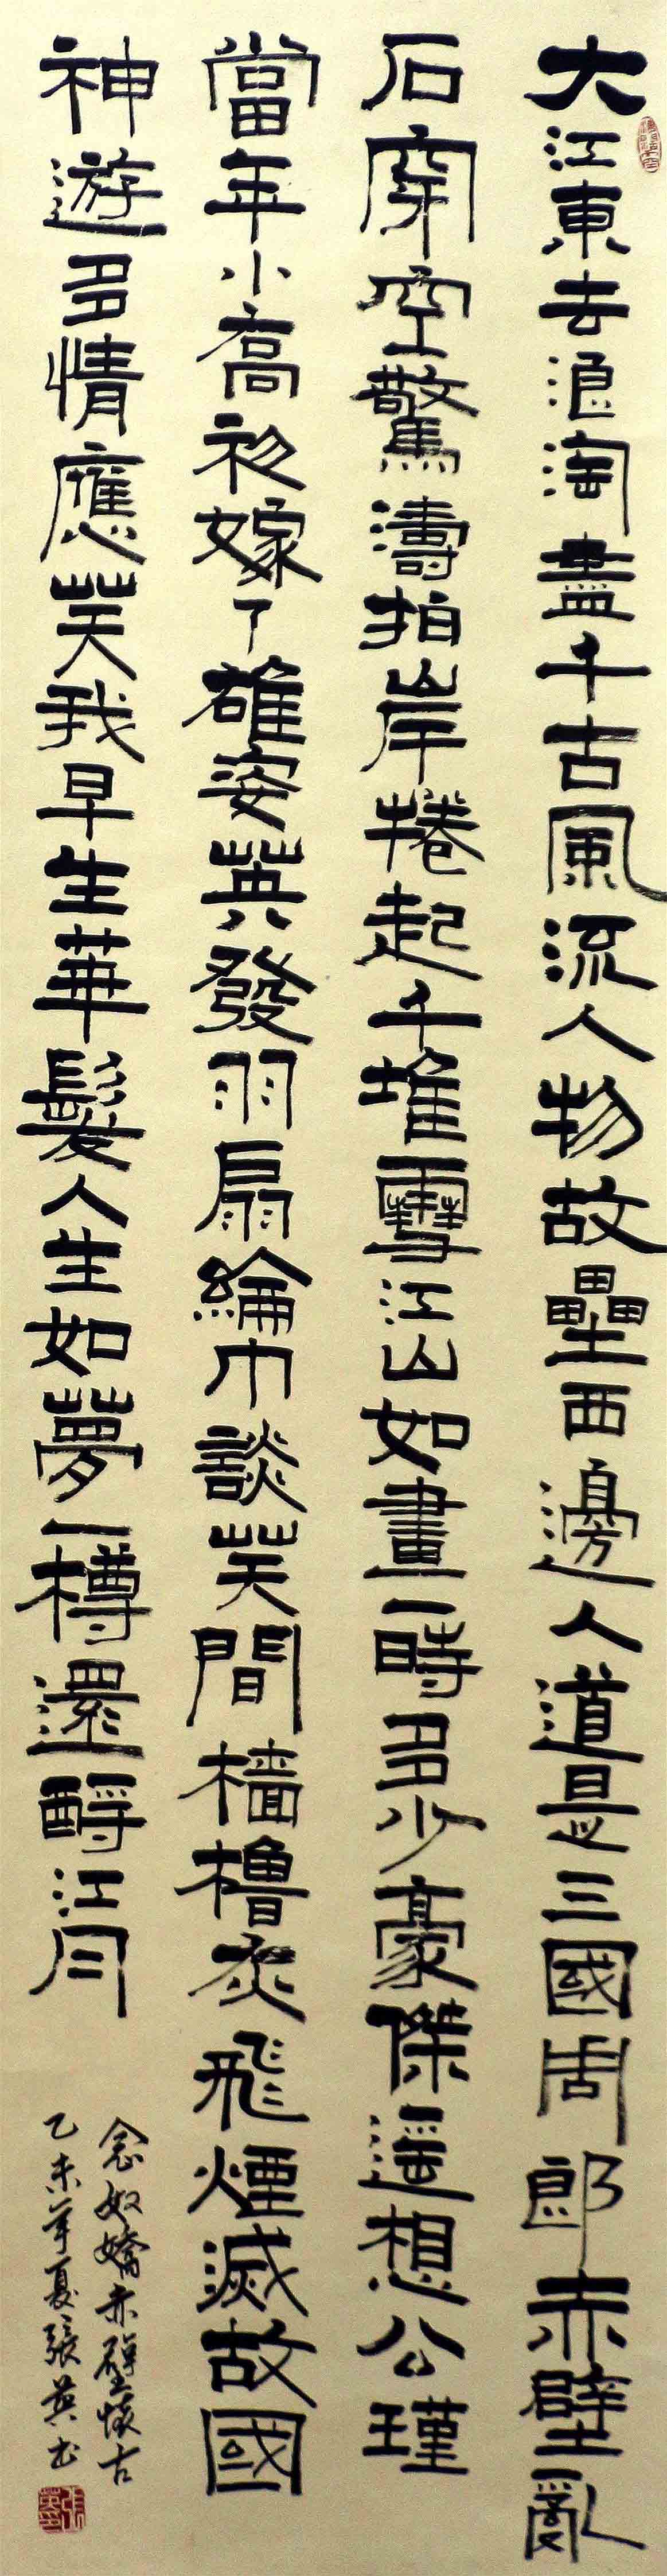 大江東去浪淘盡千古風流人物故壘西邊人道是三國周郎赤壁亂
石穿空驚濤拍岸捲起千堆雪江山如畫一時多少豪傑遥想公瑾
當年小喬初嫁了雄姿英發羽扇綸巾談笑間檣櫓灰飛煙滅故國
神遊多情應笑我早生華髮人生如夢一樽還酹江月
念奴嬌赤壁懷古
乙未年夏張英书